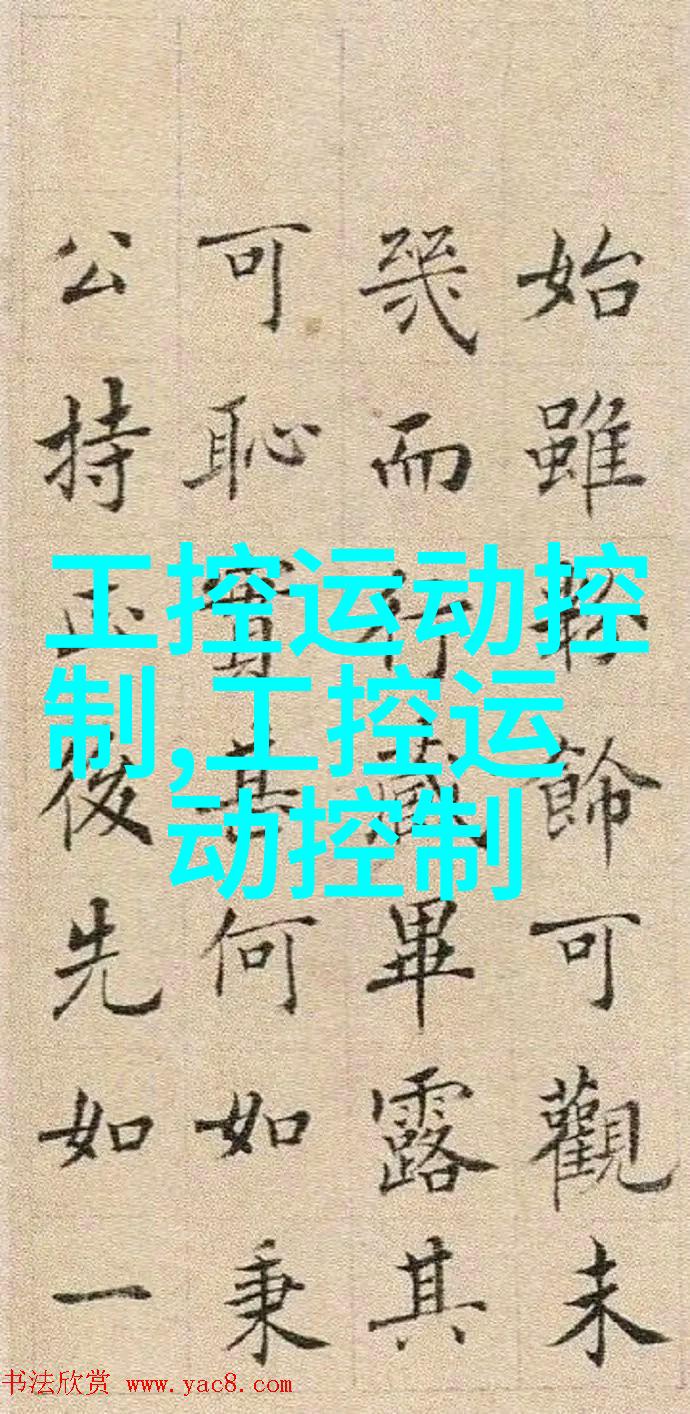 始雖飾可觀未
幾而行藏畢露其
可恥實甚何如秉
公持正後先如一
工控运动控
制,工控运
动控制
书法欣赏 www.yac8.com